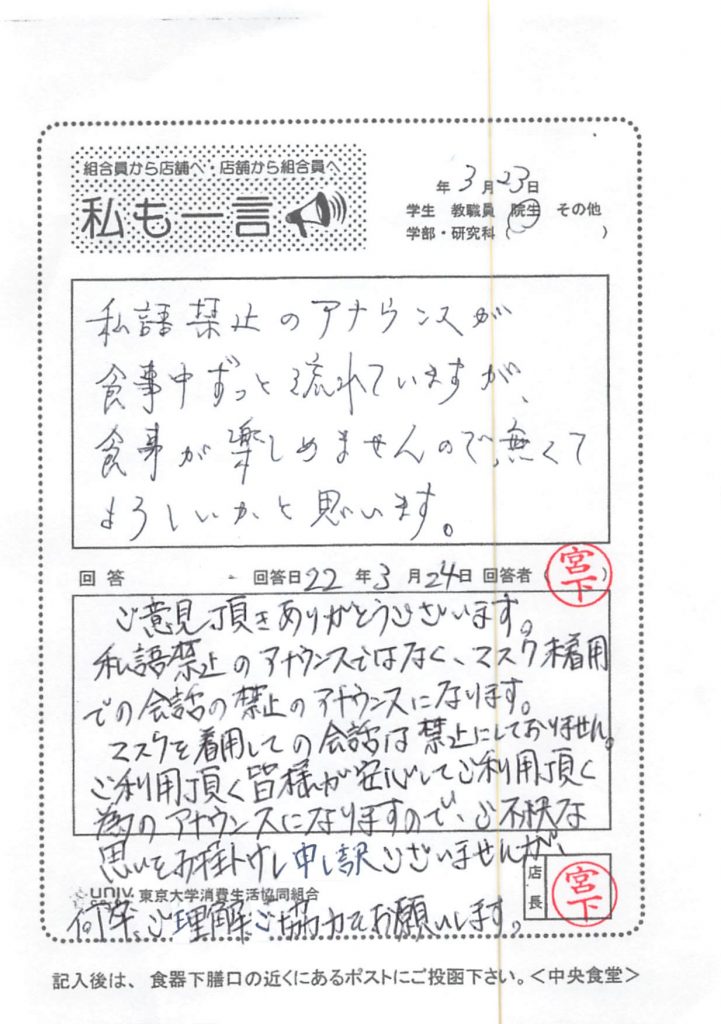 組合員から店舗へ・店舗から組合員へ
私も一言
年 3月23日
学生 教職員 院生 その他
学部・研究科( )
私語禁止のアナウンスが
食事中ずっと流れていますが、
食事が楽しめませんので、無くて
よろしいかと思います。
回答 回答日22年3月24日 回答者(宮下)
ご意見頂きありがとうございます。
私語禁止のアナウンスではなく、マスク未着用
での会話の禁止のアナウンスになります。
マスクを着用しての会話は禁止にしておりません。
ご利用頂く皆様が安心してご利用頂く
為のアナウンスになりますので、ご不快な
思いをお掛けし申し訳ございませんが、
店長 宮下
univ. 東京大学消費生活協同組合
何卒、ご理解ご協力をお願いします。
記入後は、食器下膳口の近くにあるポストにご投函下さい。<中央食堂>